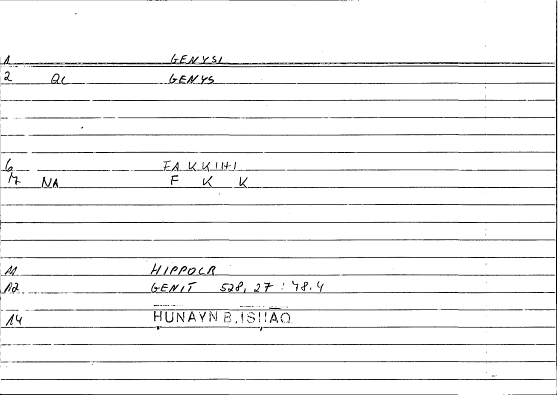 1 GENYSI
2 QL GENYS
6 FAKKIHI
17 NA F K K
11 HIPPOCR
12 GENIT 528,27 : 48.4
14 HUNAYN B. ISHAQ